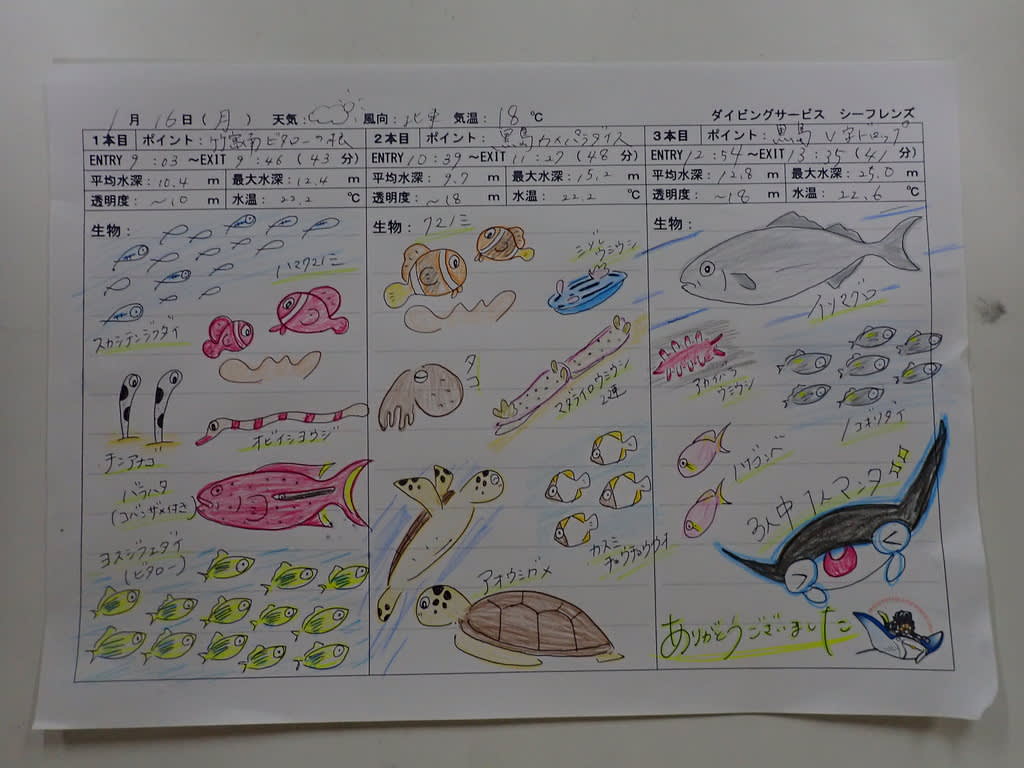 1月16日(月) 天気: 風向:北東 気温:18℃ ダイビングサービス シーフレンズ
1本目 ポイント:竹富南ビタローの根
ENTRY 9:03~EXIT 9:46(43分)
平均水深:10.4 m 最大水深:12.4 m
透明度:~10 m 水温:22.2 ℃
生物:
スカシテンジクダイ
ハマクマノミ
チンアナゴ
オビイシヨウジ
バラハタ
(コバンザメ付き)
ヨスジフエダイ
(ビタロー)
2本目 ポイント:黒島カメパラダイス
ENTRY 10:39~EXIT 11:27(48分)
平均水深:9.7 m 最大水深:15.2 m
透明度:~18 m 水温:22.2 ℃
生物:
クマノミ
ミゾレウミウシ
タコ
マダライロウミウシ
2連
カスミ
チョウチョウウオ
アオウミガメ
3本目 ポイント:黒島 V字ドロップ
ENTRY 12:54~EXIT 13:35(41分)
平均水深:12.8 m 最大水深:25.0 m
透明度:~18 m 水温:22.6 ℃
生物:
イソマグロ
アカフチ
ウミウシ
ノコギリダイ
ハナゴンベ
3人中1人マンタ
ありがとうございました